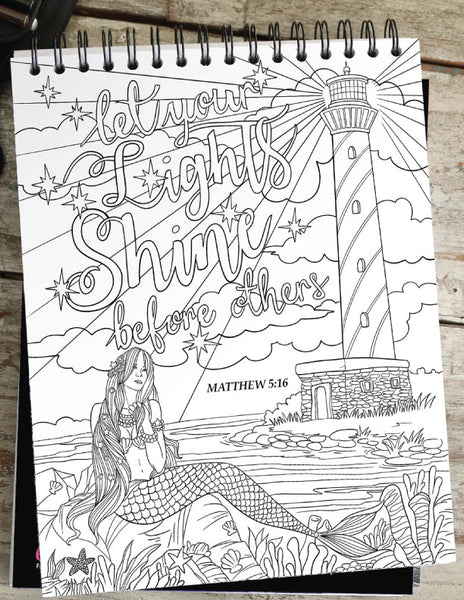 let your
Lights
Shine
before others
MATTHEW 5:16